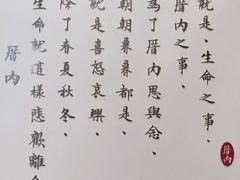 就是、生命之事、
厝內之事、
為了厝內思與念、
朝朝暮暮都是、
就是喜怒哀樂、
除了春夏秋冬、
生命就這樣悲歡離合
厝內
厝內